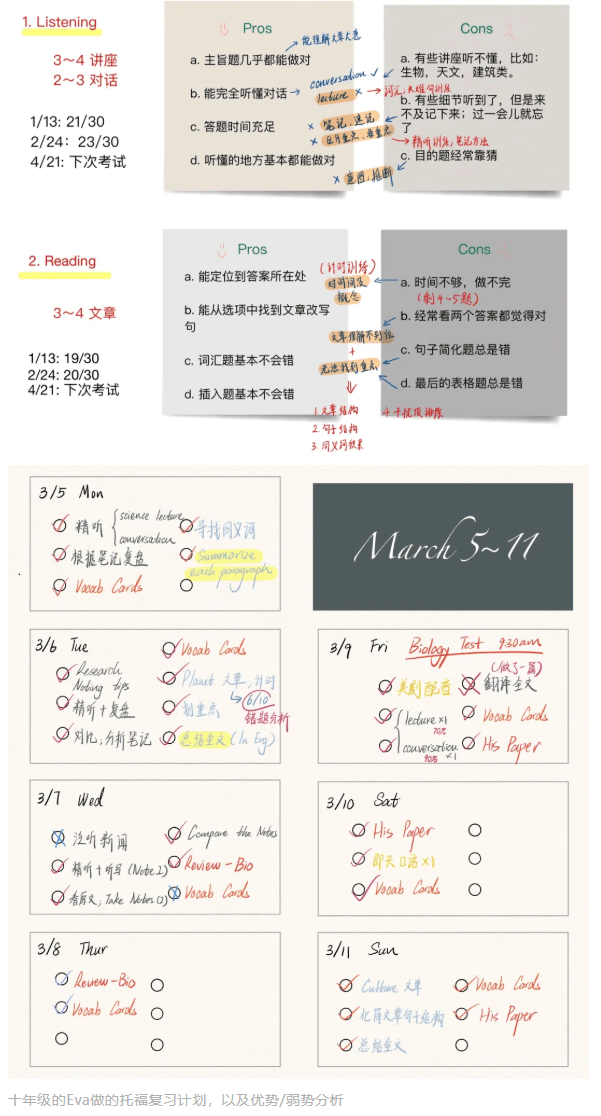 1. Listening
3～4 讲座
2～3 对话
1/13: 21/30
2/24：23/30
4/21: 下次考试
Pros
a. 主旨题几乎都能做对
b. 能完全听懂对话
c. 答题时间充足
d. 听懂的地方基本都能做对
能理解文章大意
conversation ✓
lecture ×
词汇,长难句训练
× 笔记,速记
× 重点
精听训练,笔记方法
× 意图,推断
Cons
a. 有些讲座听不懂，比如：
生物，天文，建筑类。
b. 有些细节听到了，但是来
不及记下来；过一会儿就忘
了
c. 目的题经常靠猜
2. Reading
3～4 文章
1/13: 19/30
2/24: 20/30
4/21: 下次考试
Pros
a. 能定位到答案所在处
b. 能从选项中找到文章改写
句
c. 词汇题基本不会错
d. 插入题基本不会错
(计时训练)
对时间没
概念
文章理解不到位
+
无法找到重点
1. 文章结构
2. 句子结构
3. 同义词
4. 干扰项排除
Cons
a. 时间不够，做不完
(剩4~5题)
b. 经常看两个答案都觉得对
c. 句子简化题总是错
d. 最后的表格题总是错
March 5~11
3/5 Mon
精听 { science lecture
conversation
根据笔记复盘
Vocab Cards
寻找同义词
Summarize
each paragraph
3/6 Tue
Research
Noting tips
精听+复盘
对比,分析笔记
Vocab Cards
Planet 文章,计时
6/10
错题分析
划重点
总结全文 (In Eng)
3/7 Wed
泛听新闻
精听+听写 (Note 1)
看原文, Take Notes (2)
Compare the Notes
Review-Bio
Vocab Cards
3/8 Thur
Review-Bio
Vocab Cards
3/9 Fri Biology Test 9:30am
美剧配音
{ lecture ×1
70%
conversation ×1
90%
(做了一篇)
翻译全文
Vocab Cards
His Paper
3/10 Sat
His Paper
口语 ×1
Vocab Cards
3/11 Sun
Culture 文章
化简文章句子结构
总结全文
Vocab Cards
His Paper
十年级的Eva做的托福复习计划，以及优势/弱势分析